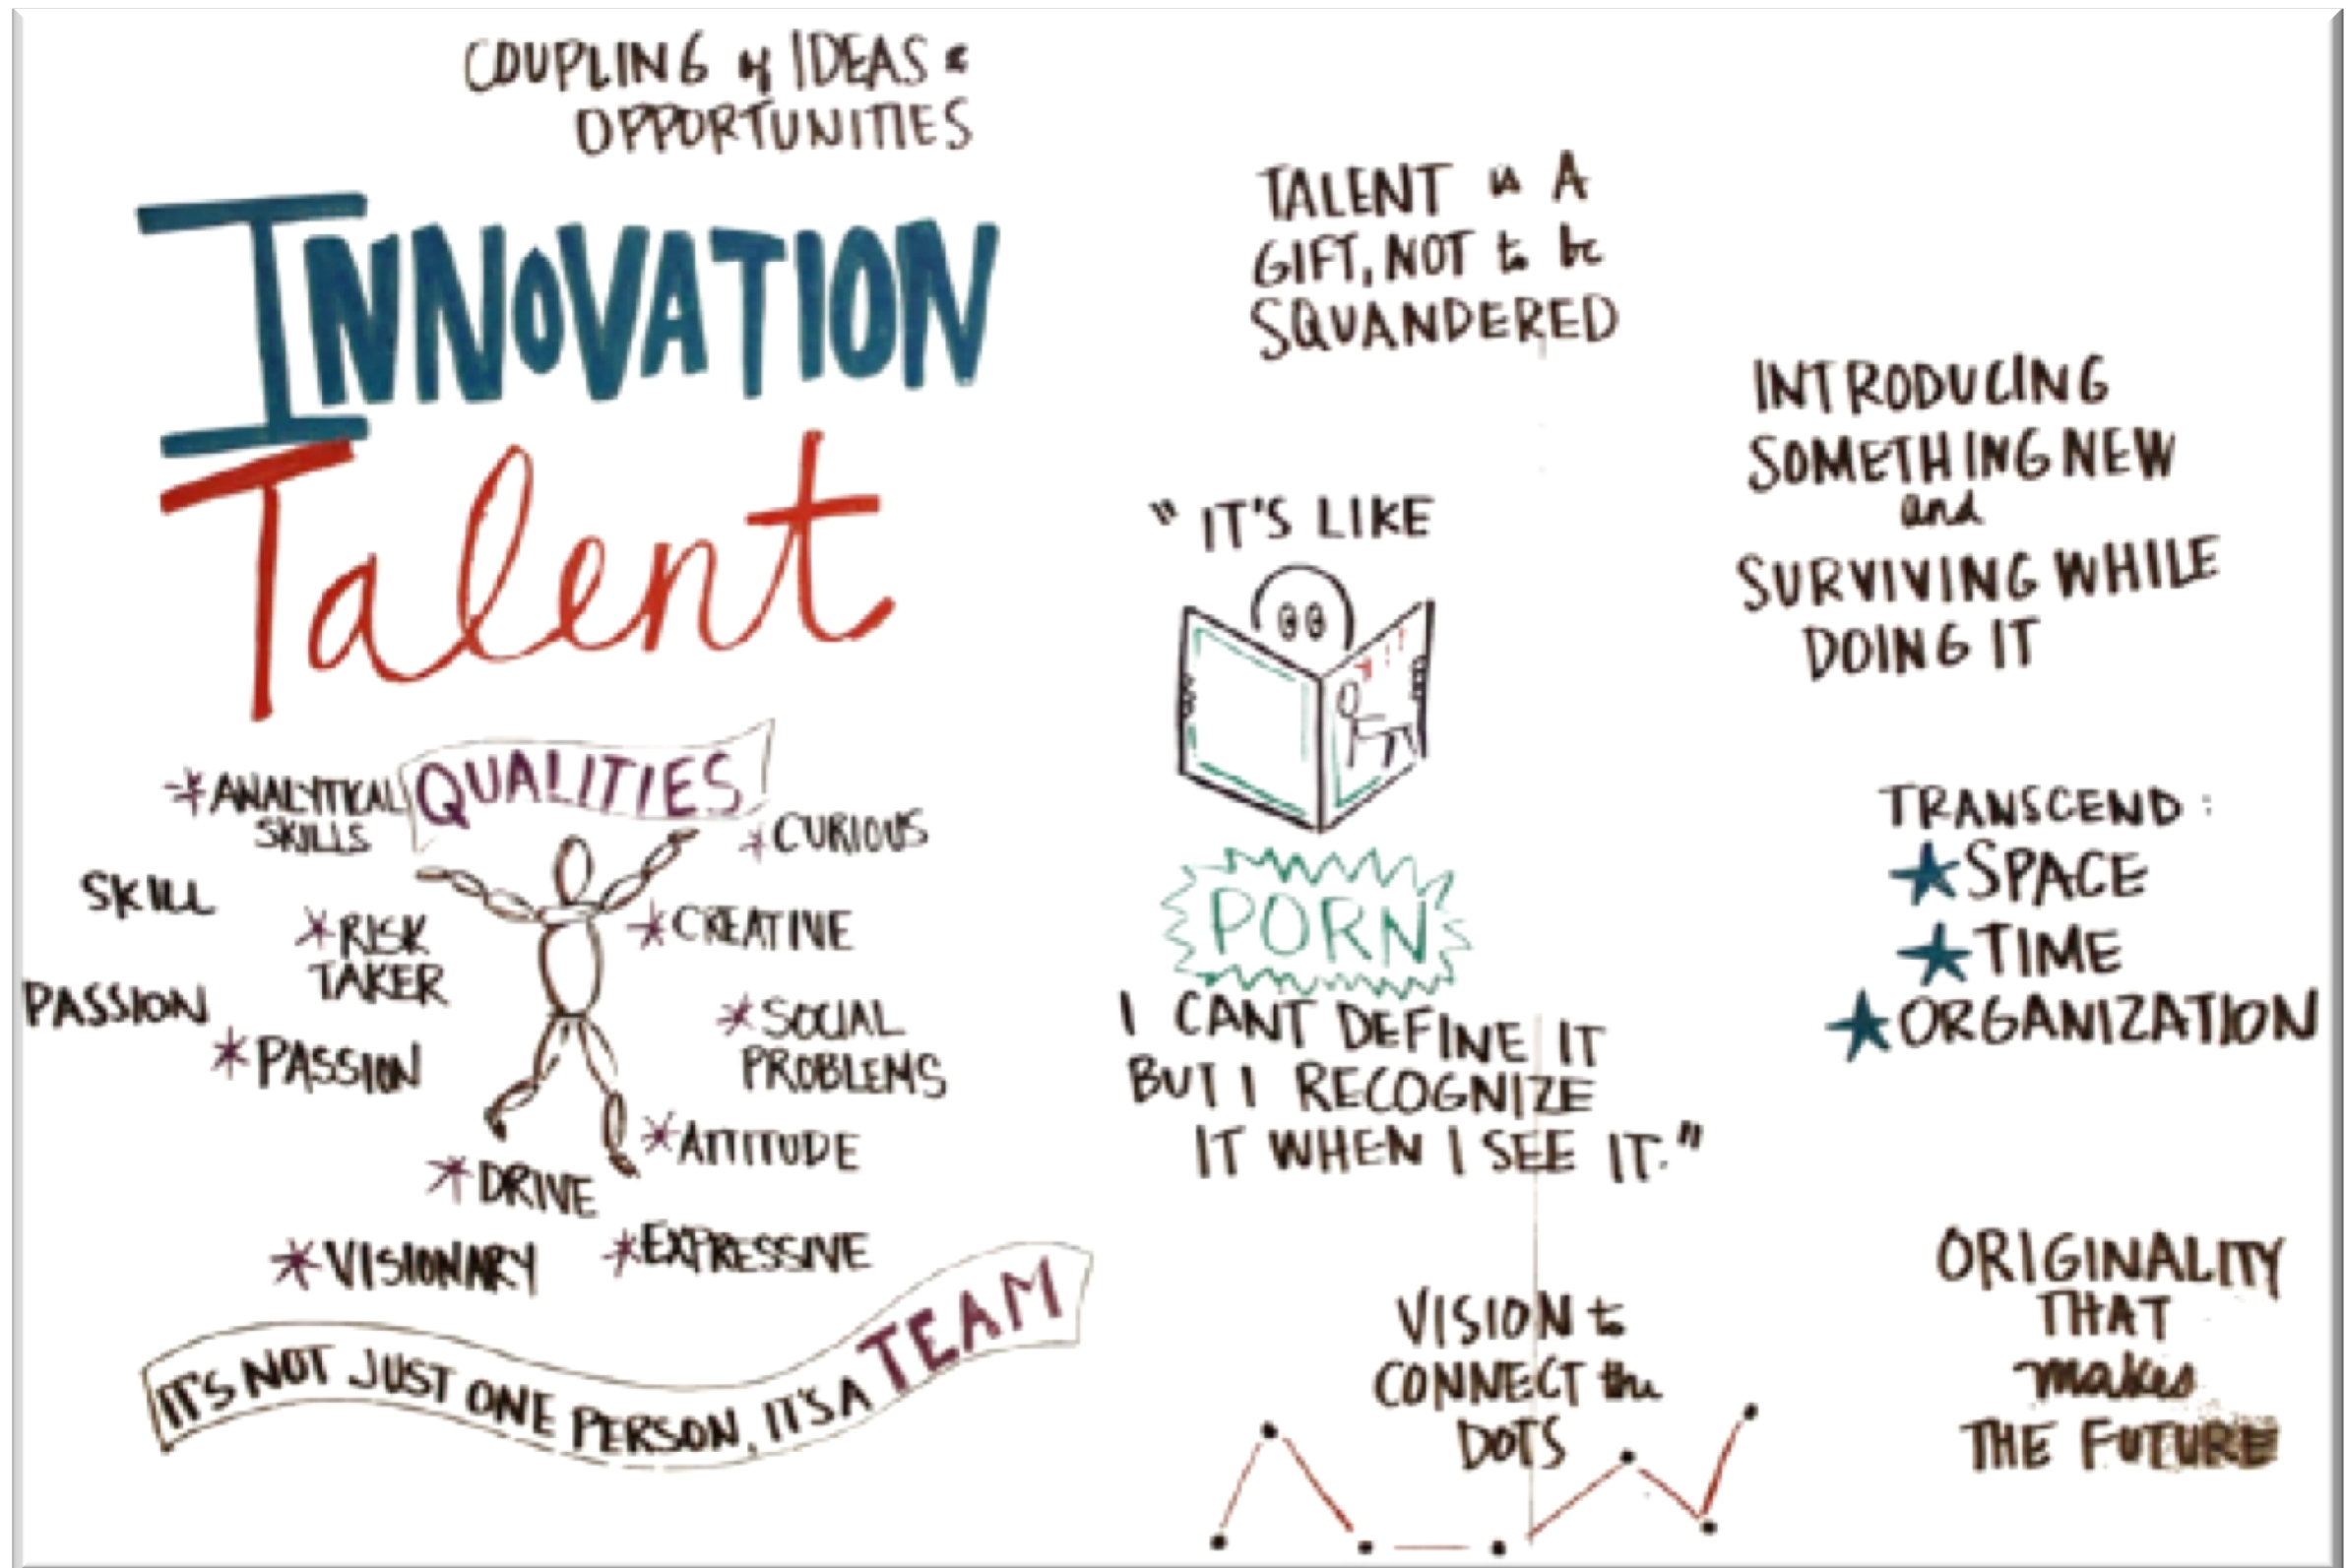 COUPLING of IDEAS &
OPPORTUNITIES
INNOVATION
Talent
QUALITIES
*ANALYTICAL
SKILLS
*CURIOUS
SKILL
*RISK
TAKER
*CREATIVE
PASSION
*PASSION
*SOCIAL
PROBLEMS
*ATTITUDE
*DRIVE
*VISIONARY
*EXPRESSIVE
IT'S NOT JUST ONE PERSON, IT'S A TEAM
TALENT is A
GIFT, NOT to be
SQUANDERED
"IT'S LIKE
PORN
I CANT DEFINE IT
BUT I RECOGNIZE
IT WHEN I SEE IT."
VISION to
CONNECT the
DOTS
INTRODUCING
SOMETHING NEW
and
SURVIVING WHILE
DOING IT
TRANSCEND:
★SPACE
★TIME
★ORGANIZATION
ORIGINALITY
THAT
makes
THE FUTURE